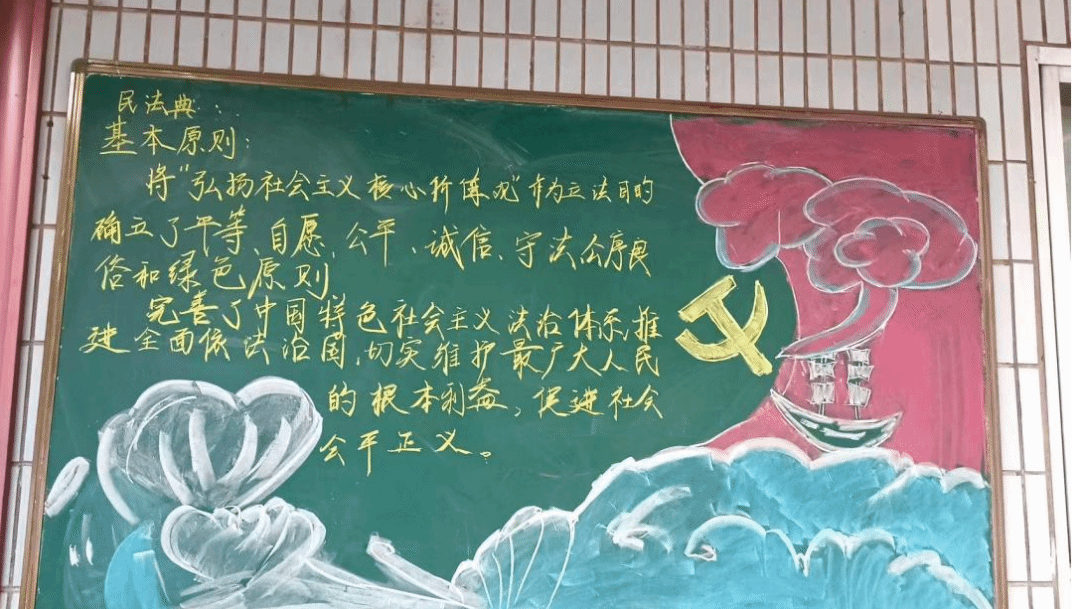 民法典：
基本原则：
将“弘扬社会主义核心价值观”作为立法目的
确立了平等、自愿、公平、诚信、守法公序良
俗和绿色原则
完善了中国特色社会主义法治体系,推
进全面依法治国,切实维护最广大人民
的根本利益,促进社会
公平正义。